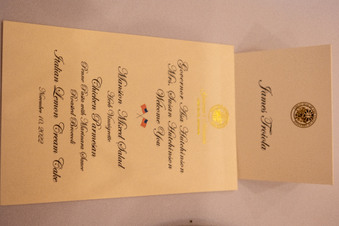 Governor Asa Hutchinson
Mrs. Susan Hutchinson
Welcome You
Mansion Mixed Salad
Herb Vinaigrette
Chicken Parmesan
Penne Pasta with Marinara Sauce
Roasted Broccoli
Italian Lemon Cream Cake
November 10, 2022
James Trivla